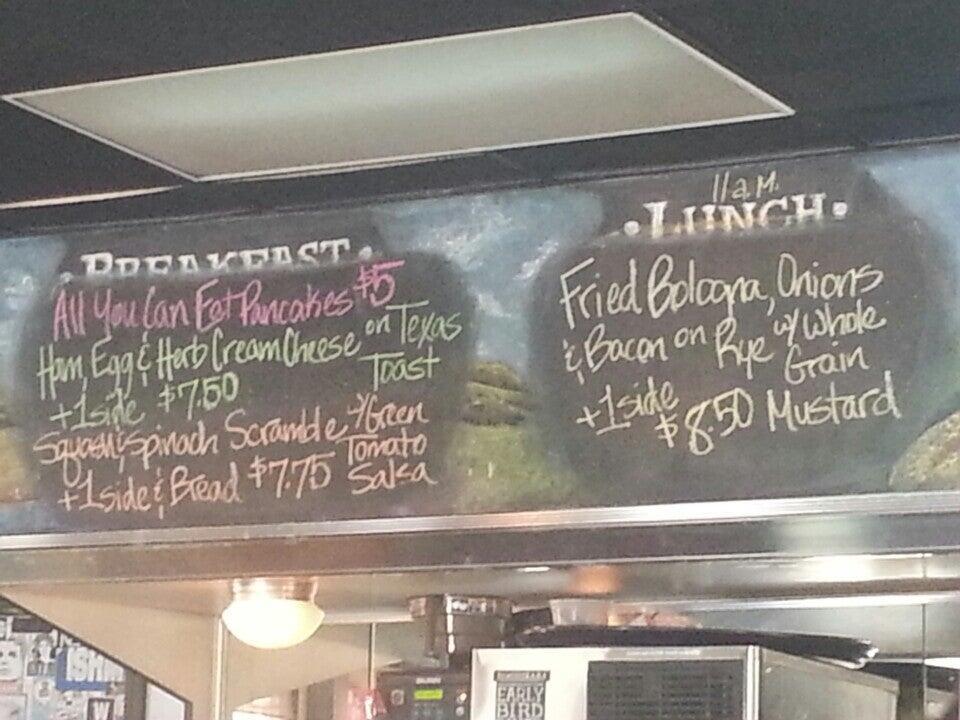 BREAKFAST
All You Can Eat Pancakes $5
Ham, Egg & Herb Cream Cheese on Texas
Toast
+1 side $7.50
Squash & Spinach Scramble w/ Green
Tomato
+1 side & Bread $7.75 Salsa
11 a.m.
LUNCH
Fried Bologna, Onions
& Bacon on Rye w/ Whole
Grain
+1 side
$8.50 Mustard
EARLY
BIRD